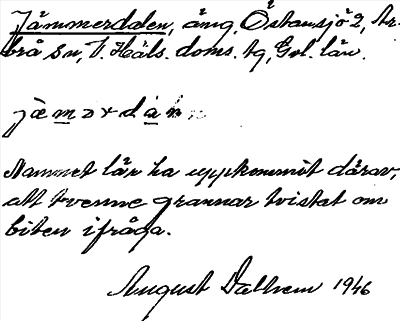 Jämmerdalen, äng, Östansjö 2, Ar-
brå sn, V. Häls. doms. tg, Gvl. län.
Namnet lär ha uppkommit därav,
att tvenne grannar tvistat om
biten ifråga.
August Dalhem 1946